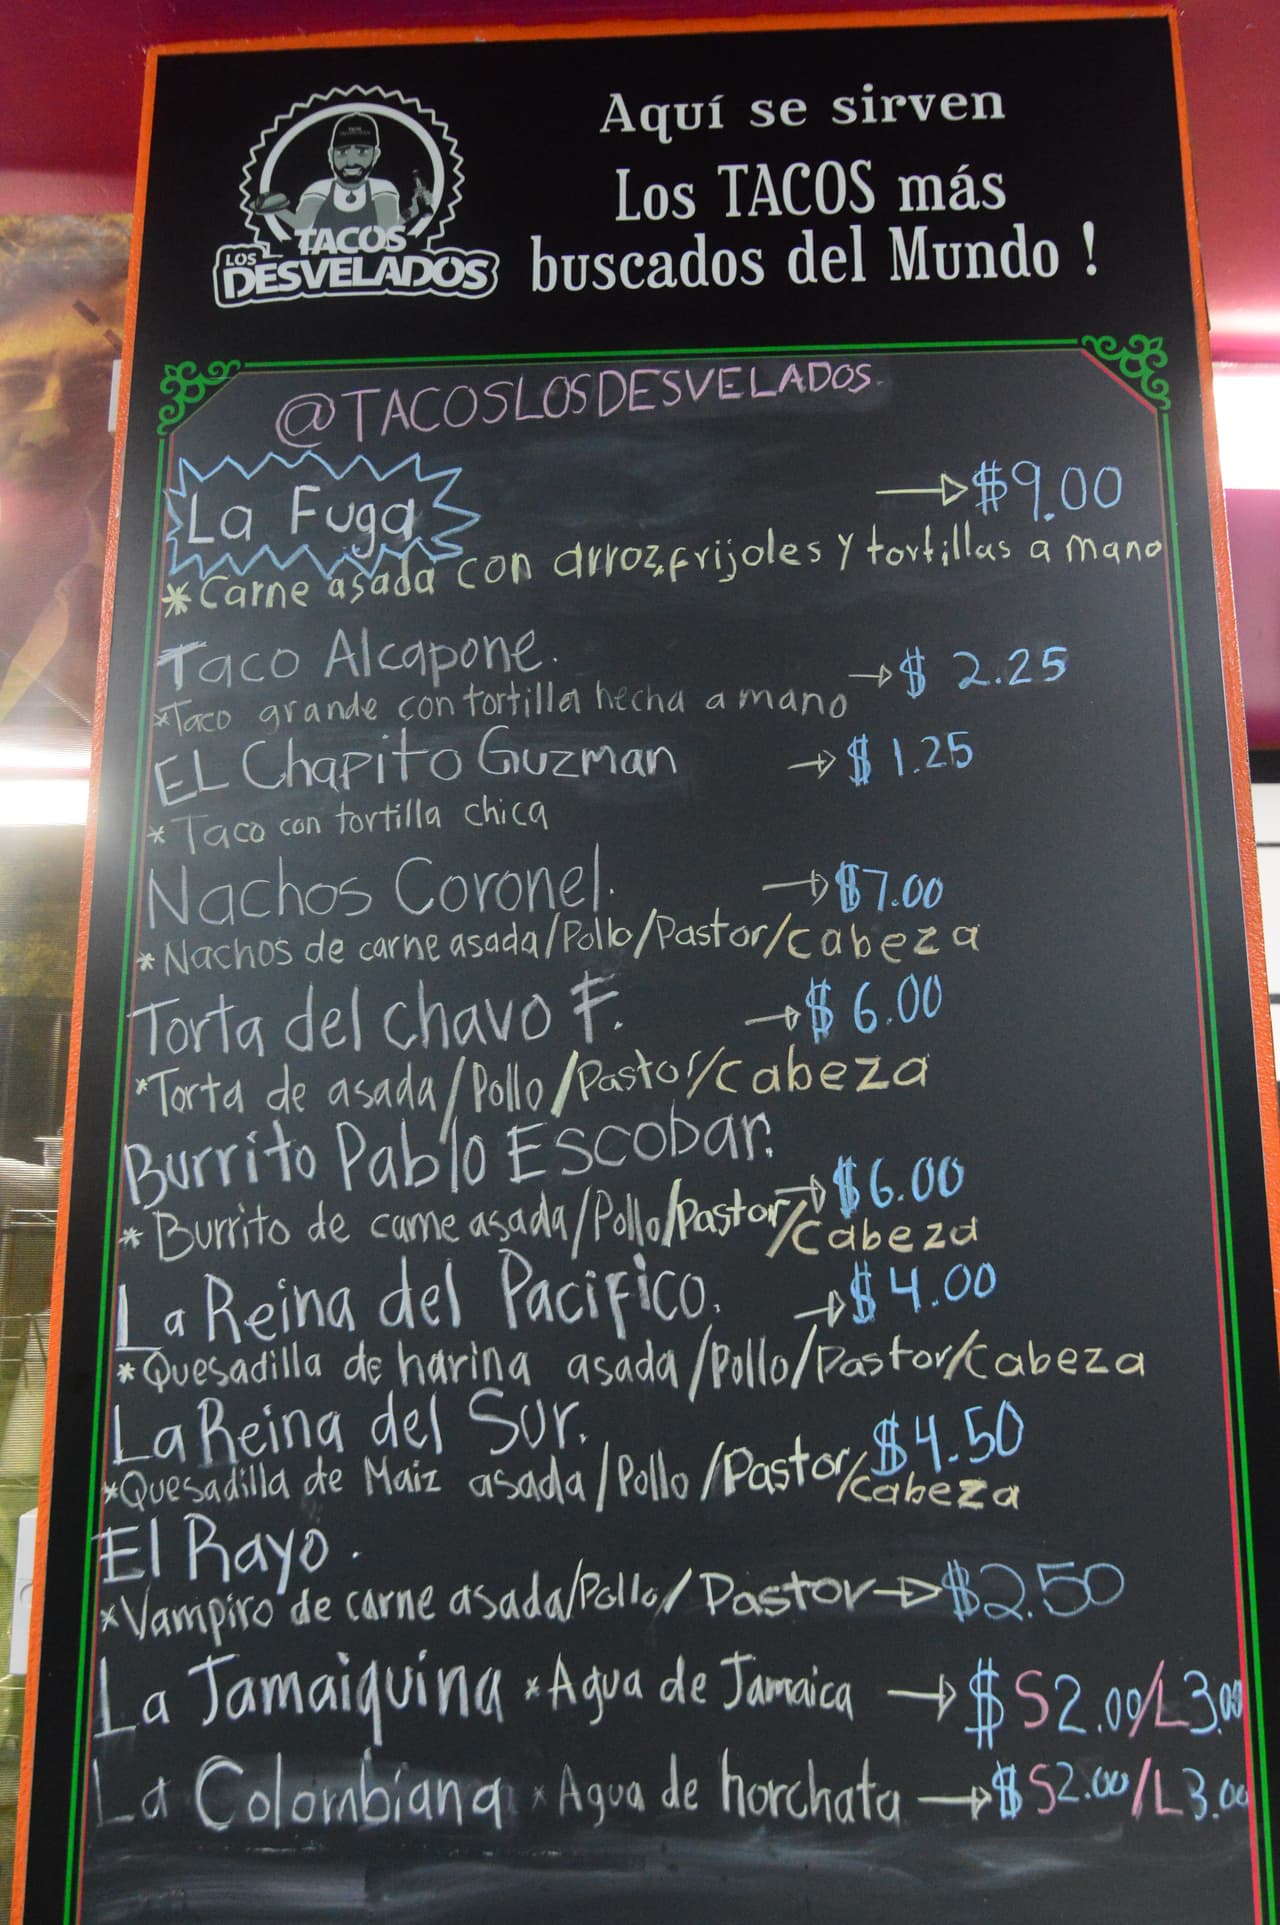 Aquí se sirven
Los TACOS más
buscados del Mundo !
TACOS
LOS
DESVELADOS
@TACOSLOSDESVELADOS
La Fuga → $9.00
*Carne asada con arroz, frijoles y tortillas a mano
Taco Alcapone. → $ 2.25
*Taco grande con tortilla hecha a mano
EL Chapito Guzman → $ 1.25
* Taco con tortilla chica
Nachos Coronel. → $7.00
* Nachos de carne asada/Pollo/Pastor/cabeza
Torta del chavo F. → $ 6.00
*Torta de asada/Pollo/Pastor/cabeza
Burrito Pablo Escobar. → $6.00
* Burrito de carne asada/Pollo/Pastor/cabeza
La Reina del Pacifico. → $4.00
*Quesadilla de harina asada/Pollo/Pastor/cabeza
La Reina del Sur. $4.50
*Quesadilla de Maiz asada/Pollo/Pastor/cabeza
El Rayo.
*Vampiro de carne asada/Pollo/Pastor → $2.50
La Jamaiquina *Agua de Jamaica → $ S2.00/L3.00
La Colombiana *Agua de horchata → $ S2.00/L3.00